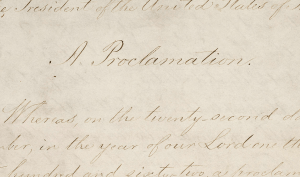 President of the United States of
A Proclamation.
Whereas, on the twenty-second d
ber, in the year of our Lord one th
hundred and sixty two, a proclam